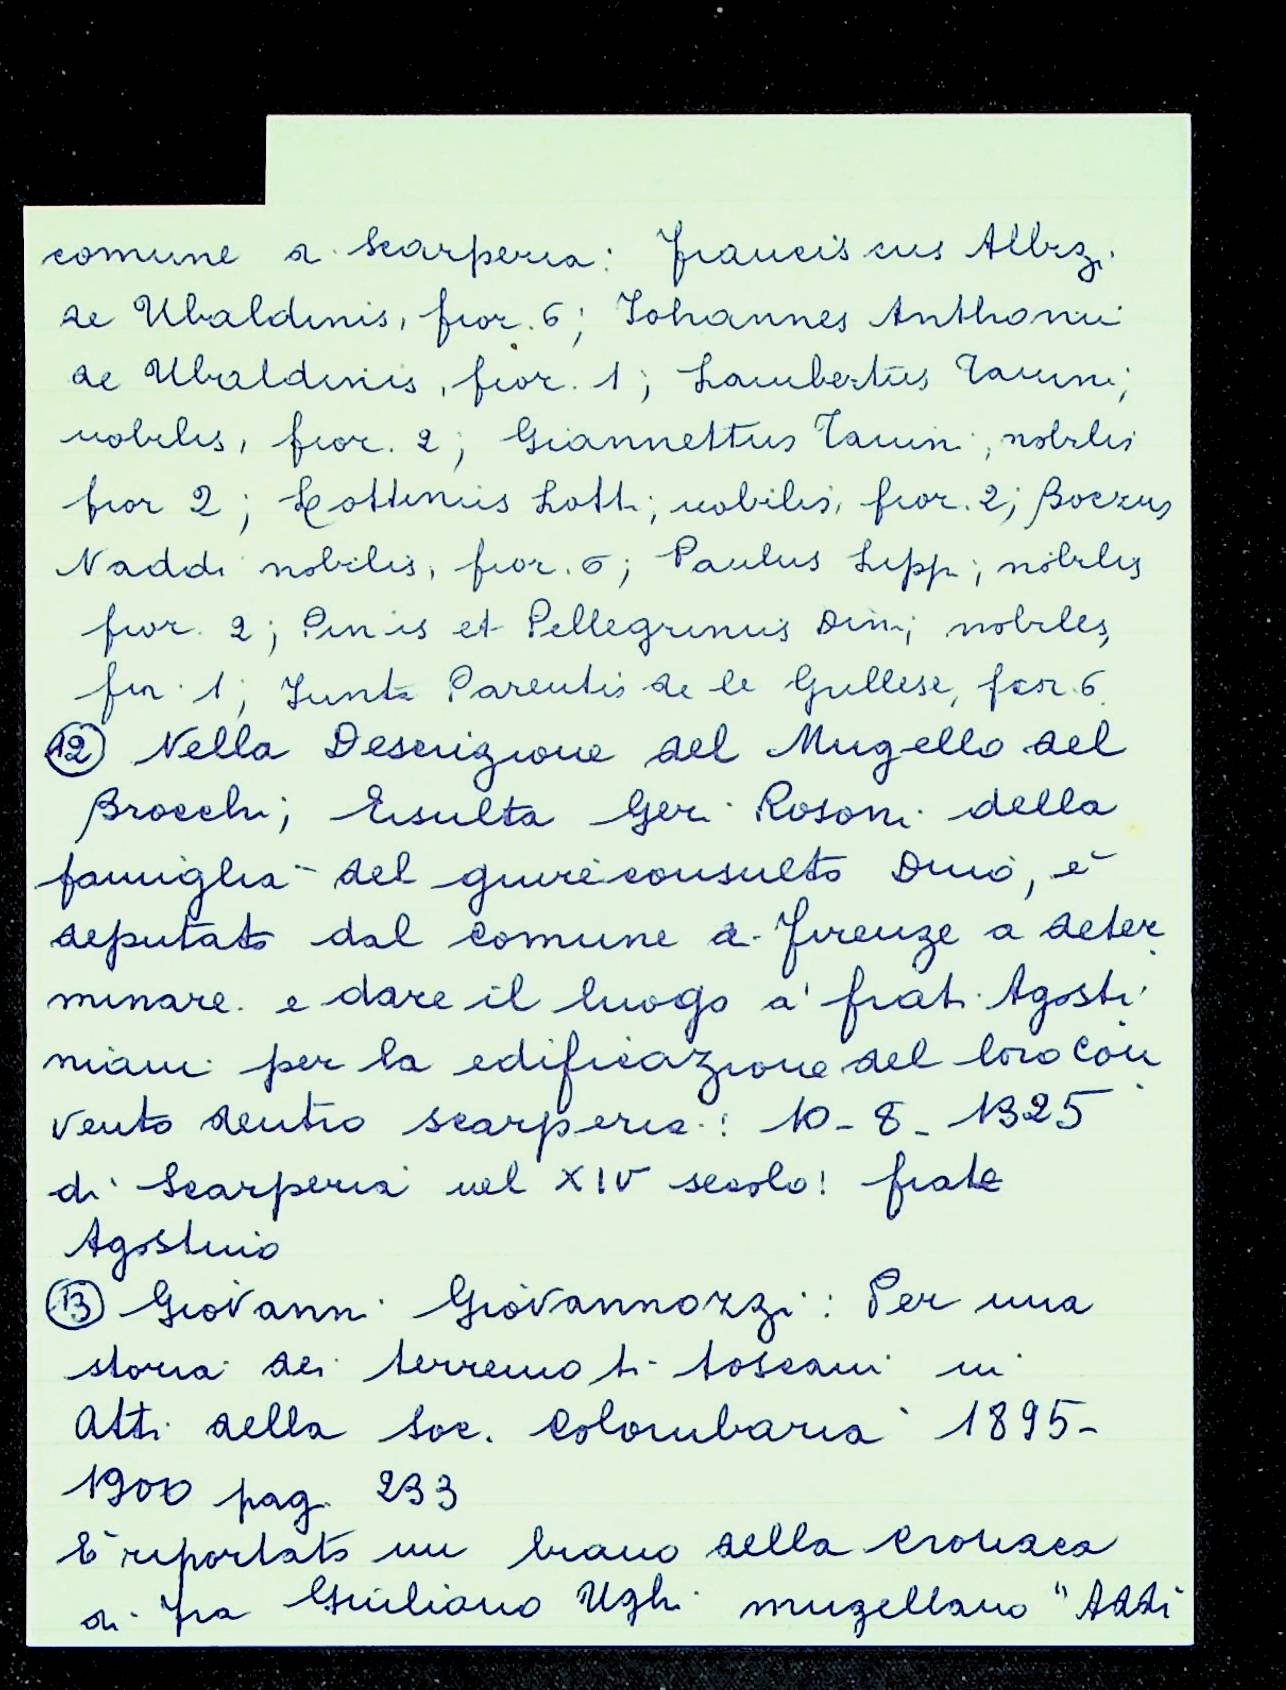 comune di Scarperia: Franciscus Albizi
de Ubaldinis, fior. 6; Johannes Anthonii
de Ubaldinis, fior. 1; Lambertus Tanini,
nobilis, fior. 2; Giannettus Tanini, nobilis
fior 2; Lottinus Lotti, nobilis, fior. 2;
Naddi nobilis, fior. 6; Paulus Lippi, nobilis
fior. 2; et Pellegrinus Dini, nobiles,
fior. 1; Parentis de le fior. 6
12 Nella Descrizione del Mugello del
Brocchi, Risulta Geri Rosoni della
famiglia del giureconsulto Dino, è
deputato dal comune di Firenze a deter
minare e dare il luogo a' frati Agosti
niani per la edificazione del loro con
vento dentro Scarperia: 10-8-1325
di Scarperia nel XIV secolo! frate
Agostino
13 Giovanni Giovannozzi: Per una
storia dei terremoti toscani in
Atti della Soc. Colombaria 1895-
1900 pag. 233
È riportato un brano della cronaca
di fra Giuliano Ughi mugellano "Addi